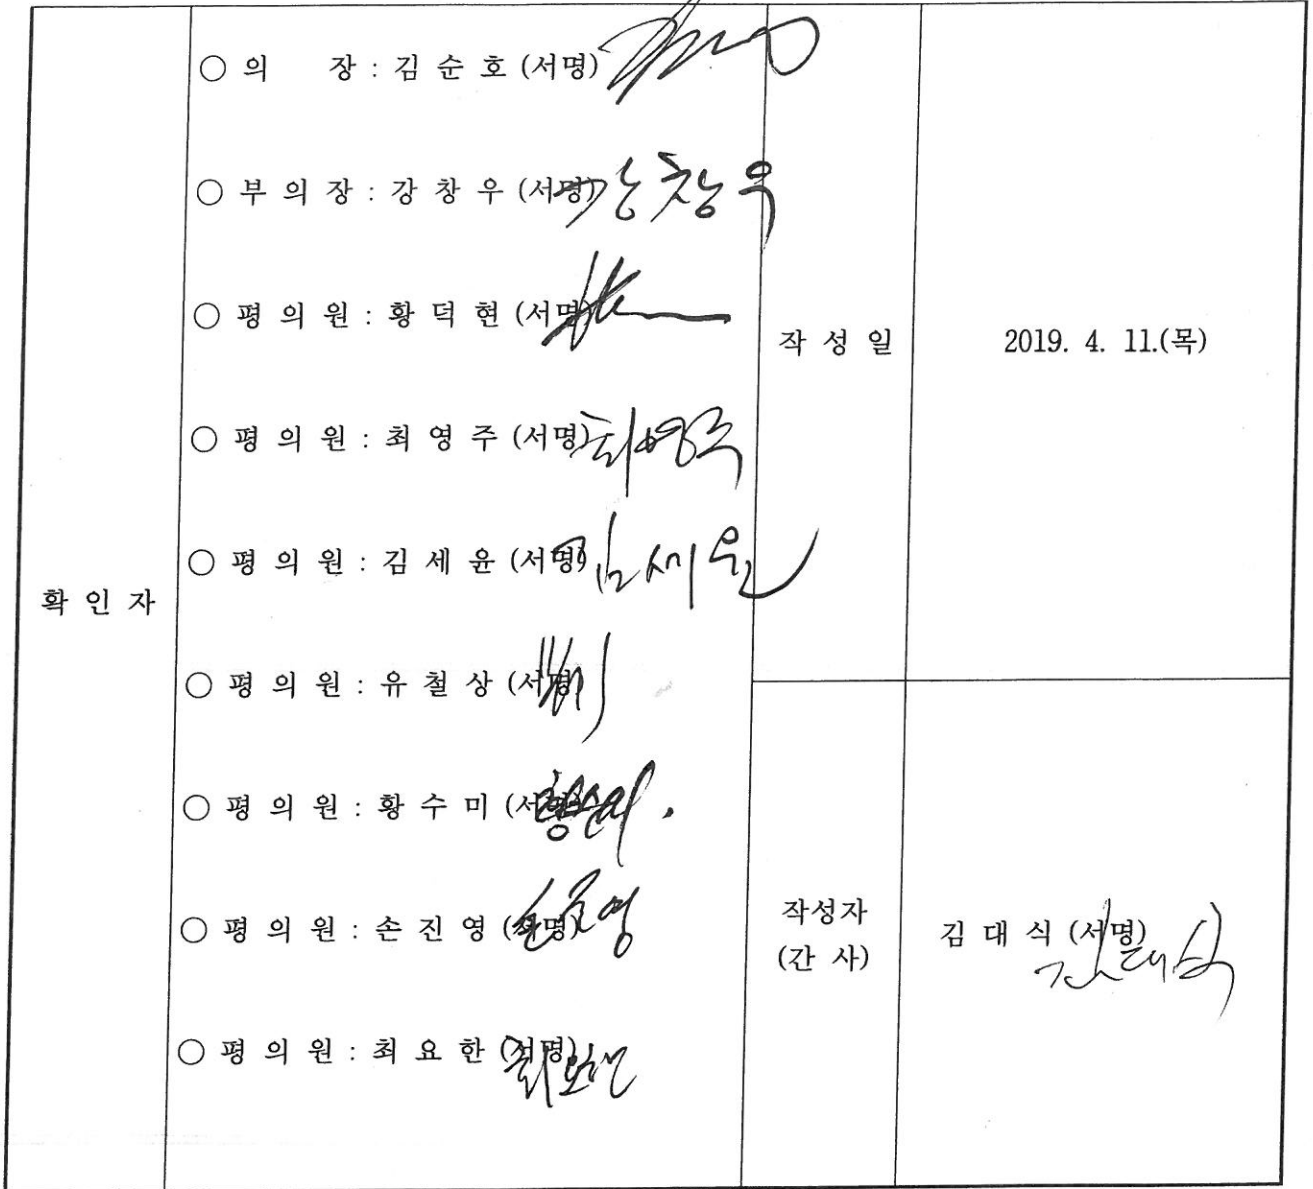 확 인 자
○ 의 장 : 김 순 호 (서명)
○ 부 의 장 : 강 창 우 (서명) 강창우
○ 평 의 원 : 황 덕 현 (서명)
○ 평 의 원 : 최 영 주 (서명) 최영주
○ 평 의 원 : 김 세 윤 (서명) 김세윤
○ 평 의 원 : 유 철 상 (서명)
○ 평 의 원 : 황 수 미 (서명) 황수미
○ 평 의 원 : 손 진 영 (서명) 손진영
○ 평 의 원 : 최 요 한 (서명) 최요한
작 성 일
2019. 4. 11.(목)
작성자
(간 사)
김 대 식 (서명)
김대식